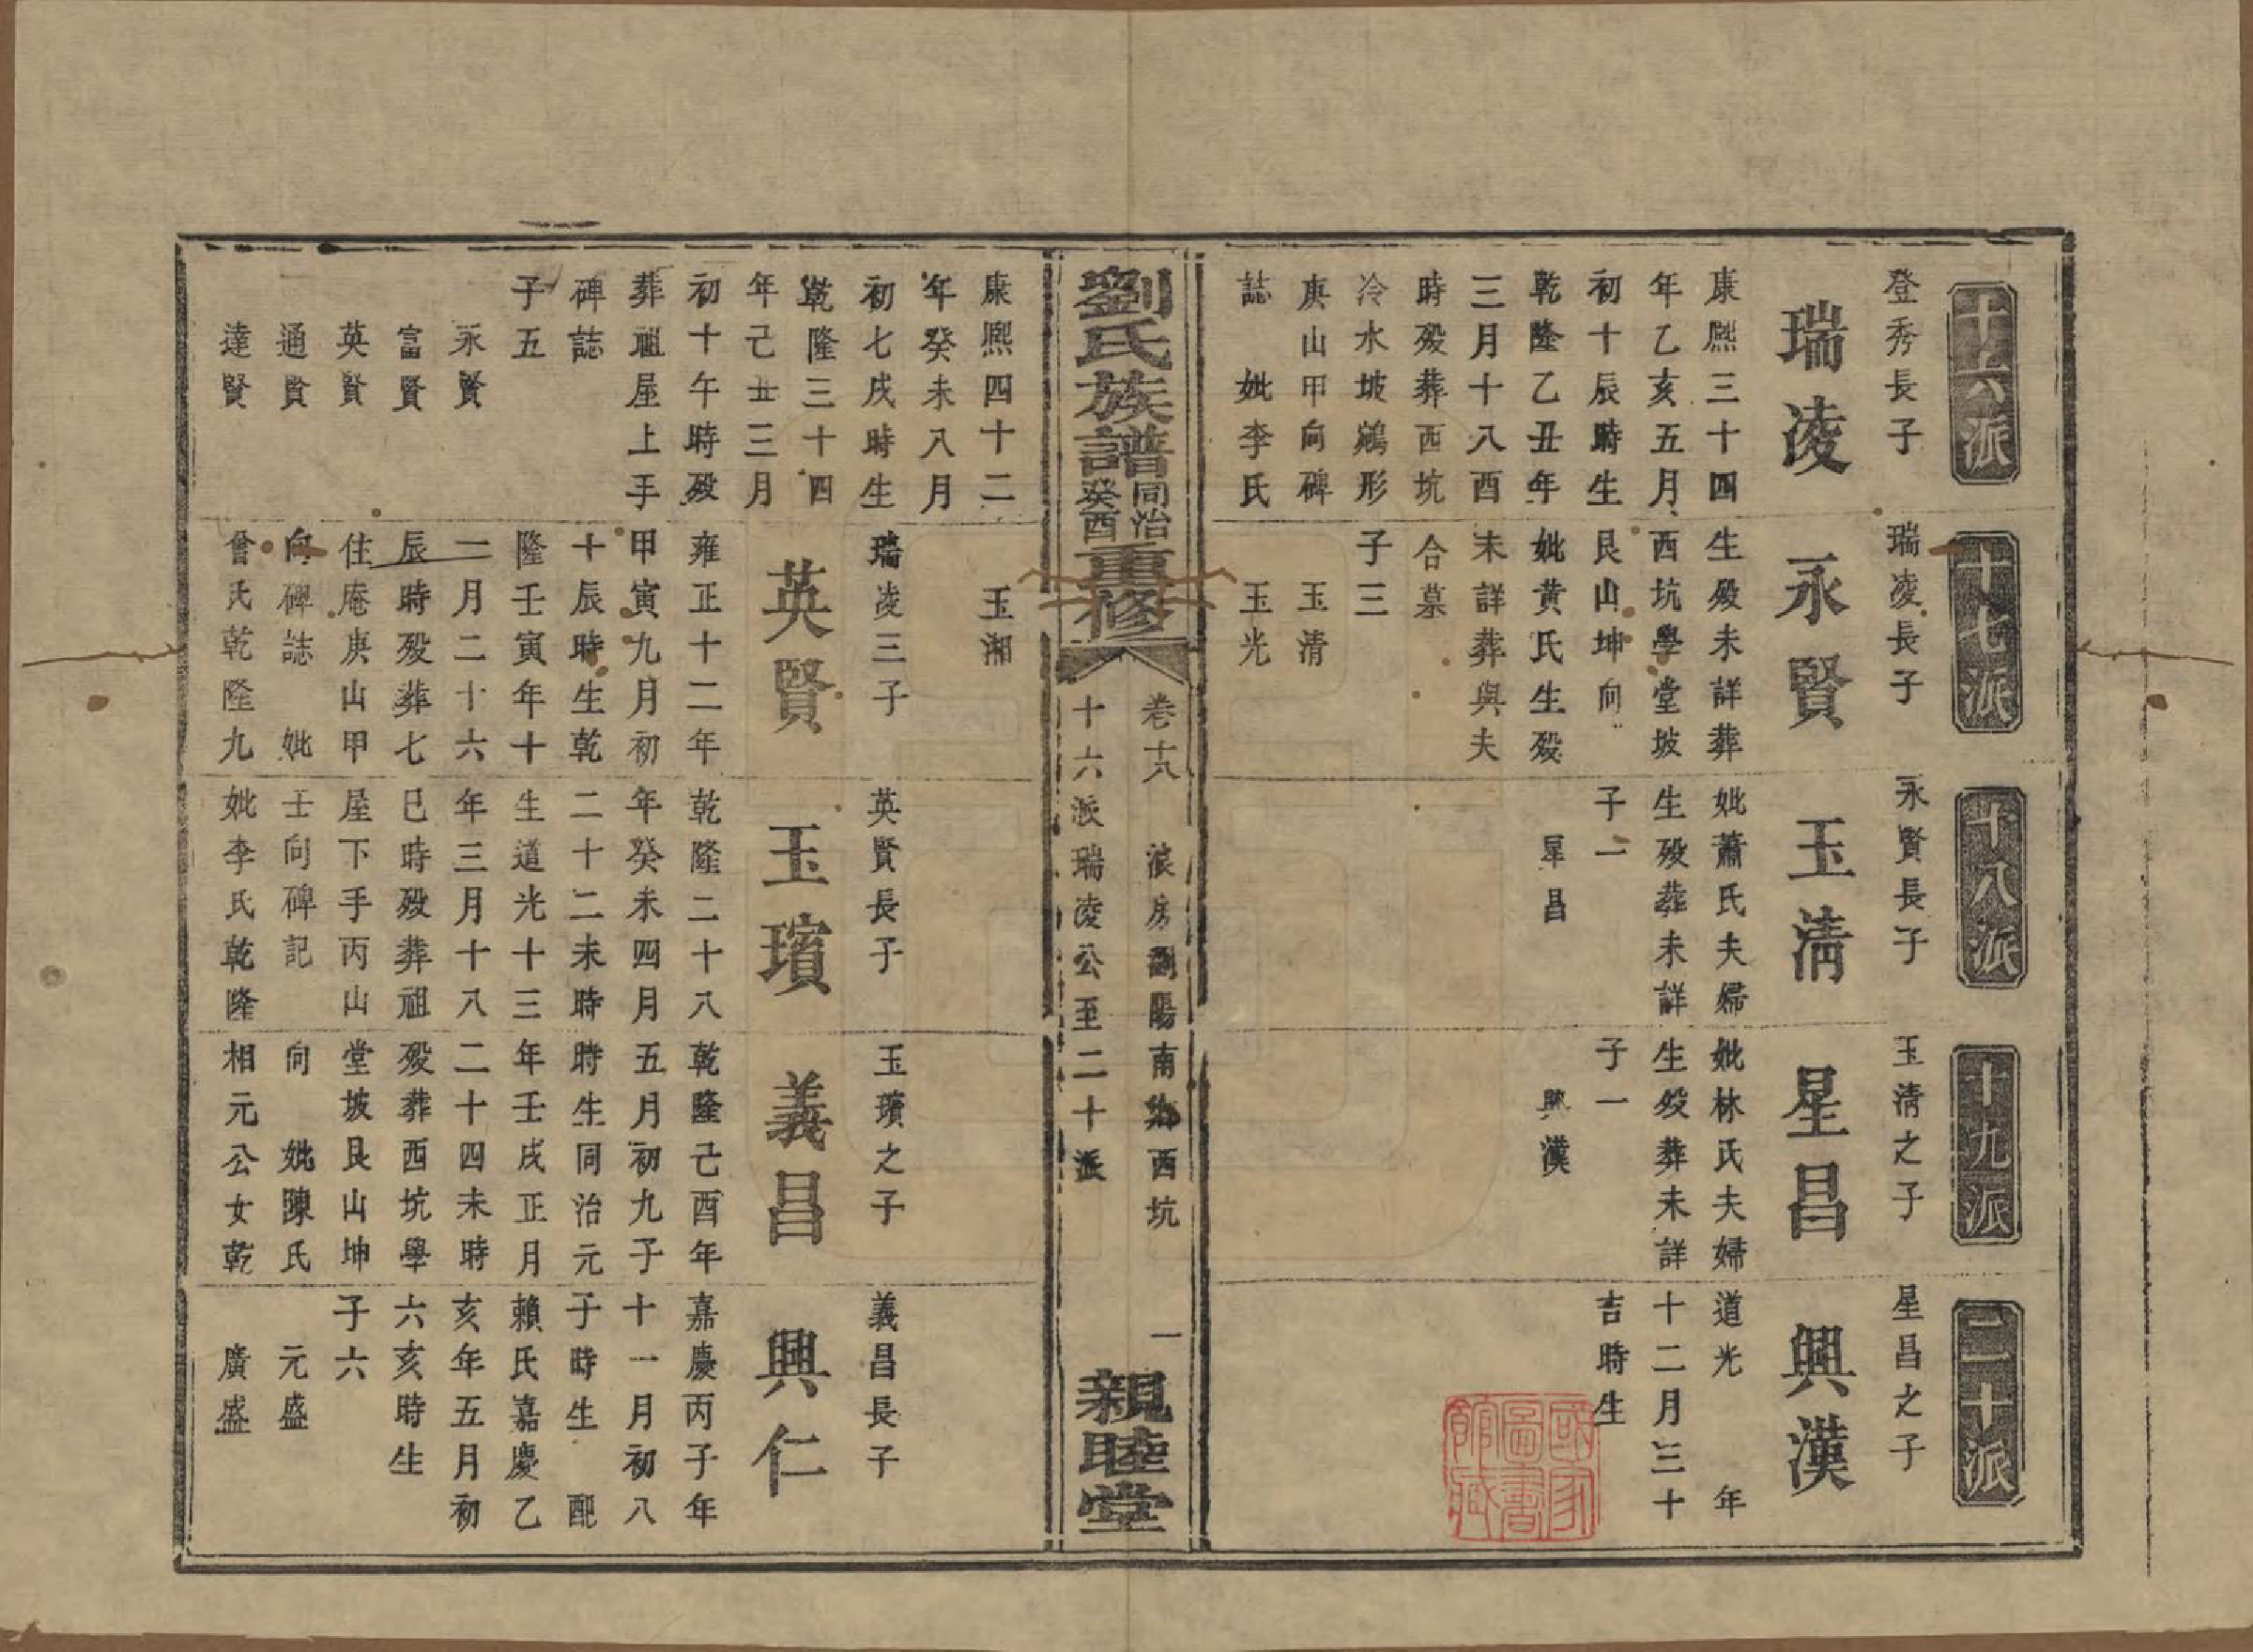 十六派
登秀長子
瑞凌
康熙三十四
年乙亥五月
初十辰時生
乾隆乙丑年
三月十八酉
時歿葬西坑
冷水坡鵝形
庚山甲向碑
誌　妣李氏
康熙四十二
年癸未八月
初七戌時生
乾隆三十四
年己丑三月
初十午時歿
葬祖屋上手
碑誌
子五
永賢
富賢
英賢
通賢
達賢
十七派
瑞凌長子
永賢
生歿未詳葬
西坑學堂坡
艮山坤向
妣黃氏生歿
未詳葬與夫
合墓
子三
玉清
玉光
玉湘
瑞凌三子
英賢
雍正十二年
甲寅九月初
十辰時生乾
隆壬寅年十
一月二十六
辰時歿葬七
住庵庚山甲
向碑誌　妣
曾氏乾隆九
十八派
永賢長子
玉清
妣蕭氏夫婦
生歿葬未詳
子一
星昌
英賢長子
玉璸
乾隆二十八
年癸未四月
二十二未時
生道光十三
年三月十八
巳時歿葬祖
屋下手丙山
壬向碑記
妣李氏乾隆
十九派
玉清之子
星昌
妣林氏夫婦
生歿葬未詳
子一
興漢
玉璸之子
義昌
乾隆己酉年
五月初九子
時生同治元
年壬戌正月
二十四未時
歿葬西坑學
堂坡艮山坤
向　妣陳氏
相元公女乾
二十派
星昌之子
興漢
道光　　年
十二月三十
吉時生
義昌長子
興仁
嘉慶丙子年
十一月初八
子時生　配
賴氏嘉慶乙
亥年五月初
六亥時生
子六
元盛
廣盛
劉氏族譜同治癸酉重修
卷十八　浪房瀏陽南鄉西坑
十六派瑞凌公至二十派
一
親睦堂
國家圖書館藏